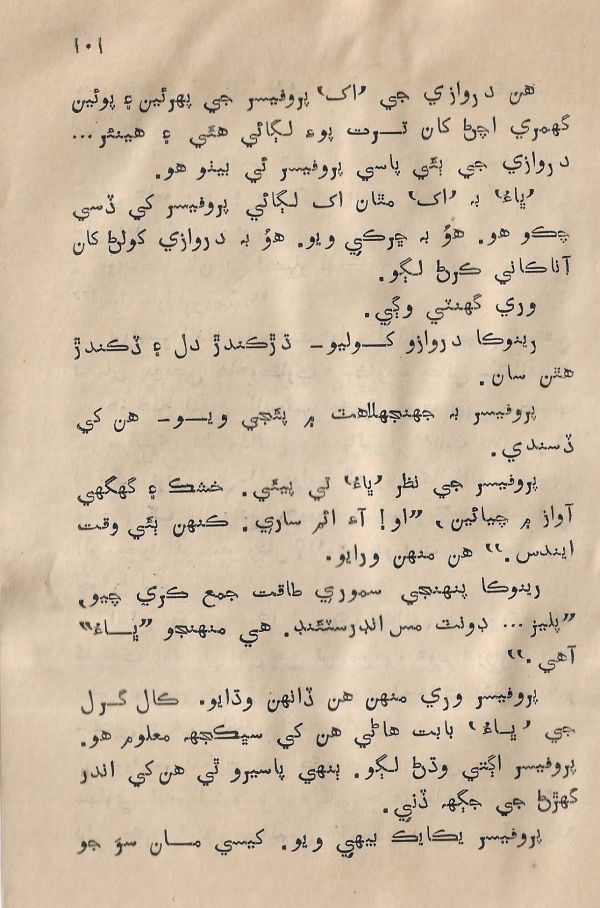 ۱۰۱
هن دروازي جي ’اک‘ پروفيسر جي پهرئين ۽ پوئين
گهمري اچڻ کان تـــرت پوءِ لڳائي هئي ۽ هينئر...
دروازي جي ٻئي پاسي پروفيسر ئي بيٺو هو.
’ڀاءُ‘ به ’اک‘ مٿان اک لڳائي پروفيسر کي ڏسي
چڪو هو. هوُ به ڇرڪي ويو. هوُ به دروازي کولڻ کان
آناڪاني ڪرڻ لڳو.
وري گهنٽي وڳي.
رينوڪا دروازو کـــوليو– ڌڙڪندڙ دل ۽ ڏڪندڙ
هٿن سان.
پروفيسر به جهنجهلاهٽ ۾ پئجي ويـــو– هن کي
ڏسندي.
پروفيسر جي نظر ’ڀاءُ‘ تي پيئي. خشڪ ۽ گهگهي
آواز ۾ چيائين، ”او! آءِ ائم ساري. ڪنهن ٻئي وقت
ايندس.“ هن منهن ورايو.
رينوڪا پنهنجي سموري طاقت جمع ڪري چيو،
”پليز... ڊونٽ مس انڊرسٽئنڊ. هي منهنجو ”ڀـــاءُ“
آهي.“
پروفيسر وري منهن هن ڏانهن وڌايو. ڪال گـرل
جي ’ڀـــاءُ‘ بابت هاڻي هن کي سڀڪجهہ معلوم هو.
پروفيسر اڳتي وڌڻ لڳو. ٻنهي پاسيرو ٿي هن کي اندر
گهڙڻ جي جڳهہ ڏني.
پروفيسر يڪايڪ بيهي ويو. کيسي مـــان سؤ جو